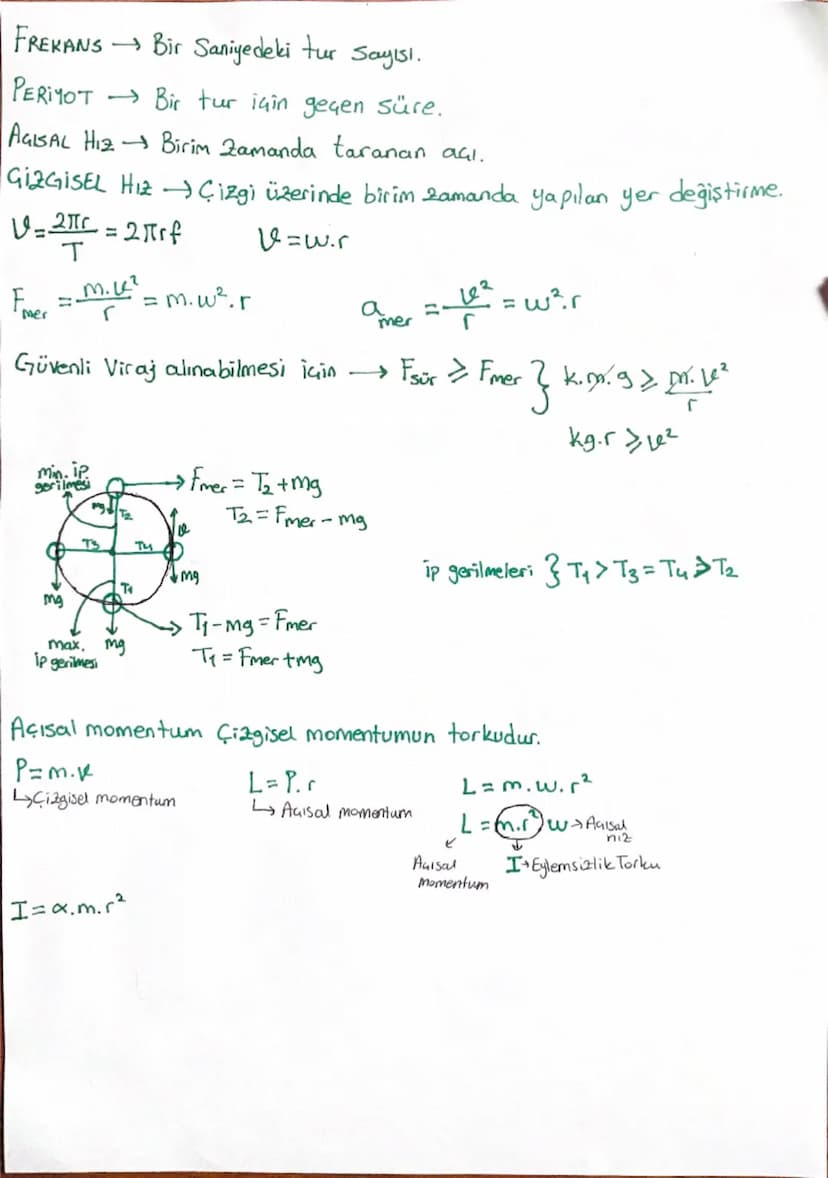 FREKANS → Bir Saniyedeki tur sayısı.
PERİYOT → Bir tur için geçen süre.
AÇISAL HIZ → Birim zamanda taranan açı.
ÇİZGİSEL HIZ → Çizgi üzerinde birim zamanda yapılan yer değiştirme.
V = 2πr/T = 2πrf    V = w.r
Fmer = m.V²/r = m.w².r    amer = V²/r = w².r
Güvenli Viraj alınabilmesi için → Fsür ≥ Fmer } k.m.g ≥ m.V²/r
kg.r ≥ V²
min. ip gerilmesi
→ Fmer = T2 + mg
T2 = Fmer - mg
mg T2
T3 T4 V
mg mg
T1
ip gerilmeleri } T1 > T3 = T4 > T2
→ T1 - mg = Fmer
T1 = Fmer + mg
max. ip gerilmesi
mg
Açısal momentum Çizgisel momentumun torkudur.
P = m.V
↳ Çizgisel momentum
L = P.r
↳ Açısal momentum
L = m.w.r²
L = (m.r²) w → Açısal hız
Açısal momentum
I → Eylemsizlik Torku
I = α.m.r²